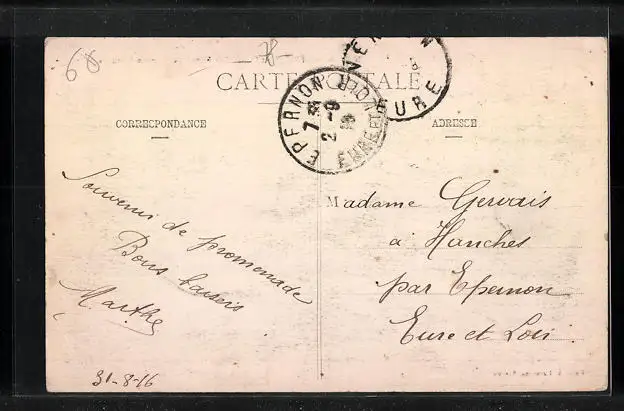 68
CARTE POSTALE
VERNON
EURE
EPERNON
7 30
2-9
16
EURE ET LOIR
CORRESPONDANCE
ADRESSE
Souvenir de promenade
Bons baisers
Marthe
31-8-16
Madame Gervais
à Hanches
par Epernon
Eure et Loir